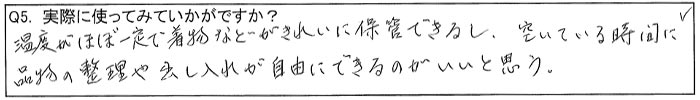 Q5. 実際に使ってみていかがですか？
温度がほぼ一定で着物などがきれいに保管できるし、空いている時間に
品物の整理や出し入れが自由にできるのがいいと思う。